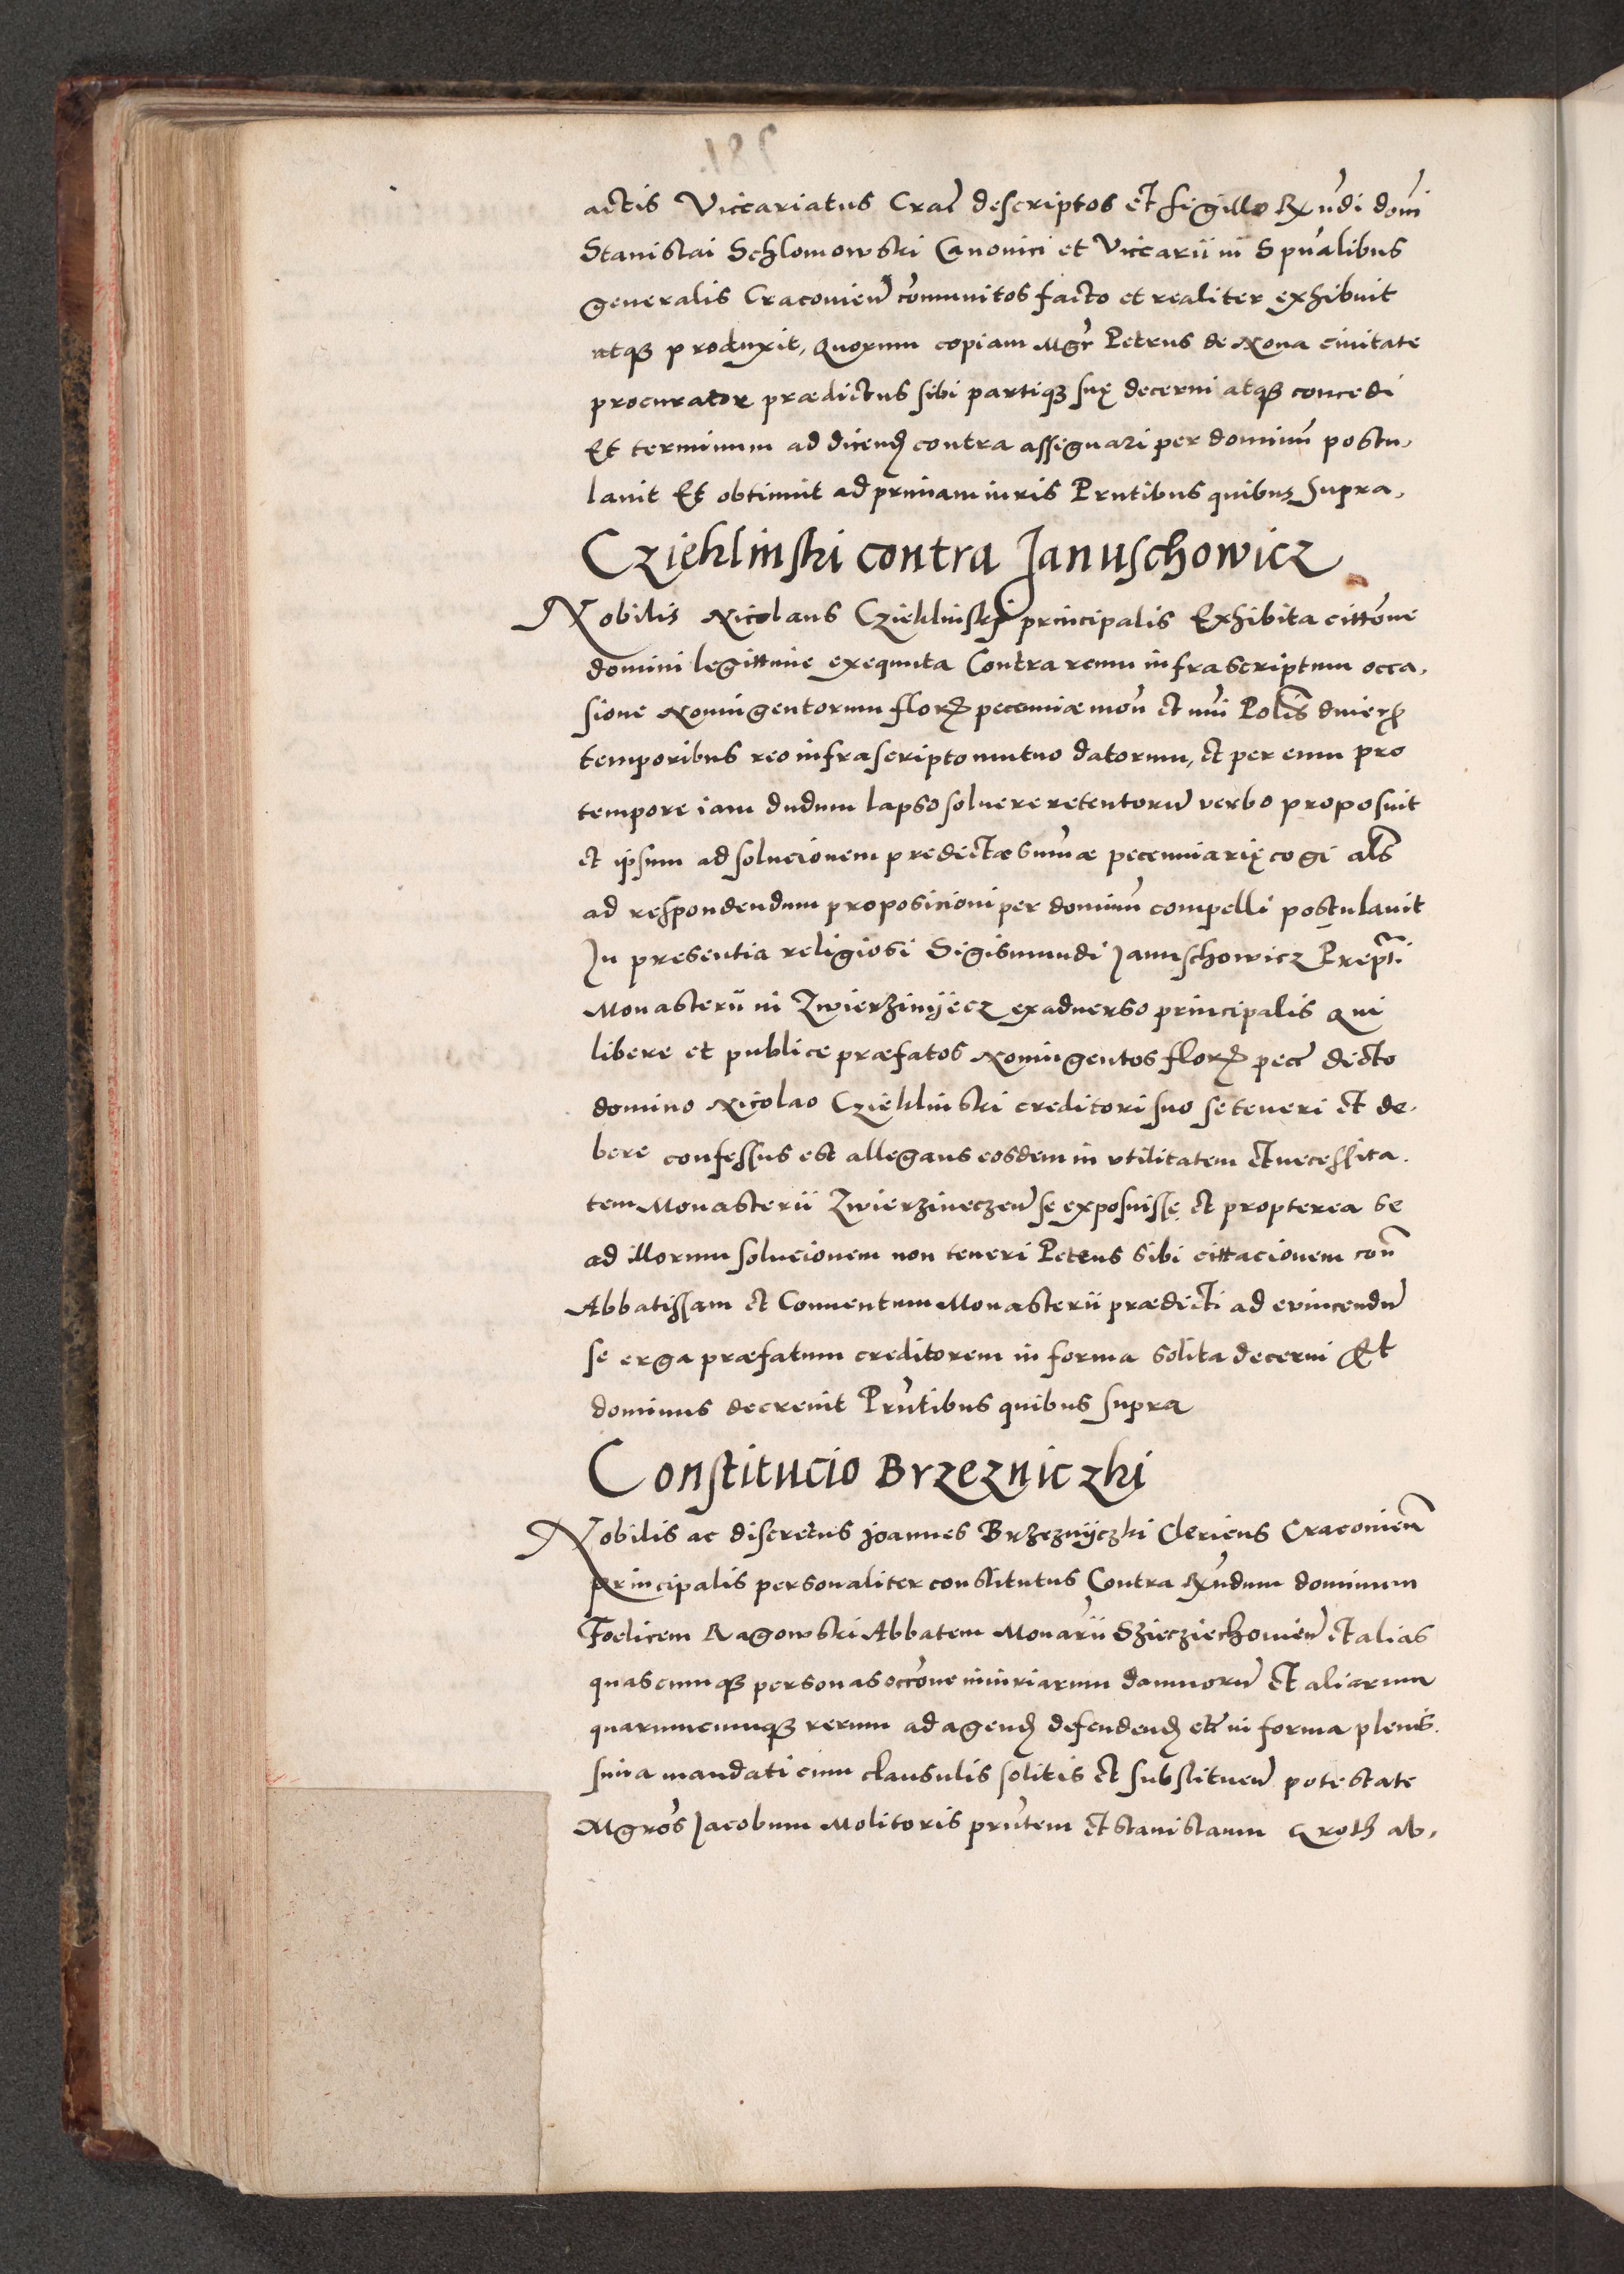 actis Viccariatus Crac̄ descriptos et sigillo Rx̄ndi dom̄
Stanislai Schlomowski Canonici et Viccarii in Spūalibus
generalis Cracovien̄ com̄unitos facto et realiter exhibuit
atqꝫ produxit, Quorum copiam Mgr̄ Petrus de Nova civitate
procurator prædictus sibi partiqꝫ suę decerni atqꝫ concedi
Et terminum ad dicenꝺ contra assignari per dominū postu,
lavit Et obtinuit ad primam iuris Prn̄tibus quibus supra,
Cziehlinski contra Januschowicz
Nobilis Nicolaus Cziehlinski principalis Exhibita citt̄one
domini legittime exequuta Contra reum infrascriptum occa,
sione Noningentorum florꝝ pecuniæ mon̄ et nūi Polis̄ diuersꝝ
temporibus reo infrascripto mutuo datorum, et per eum pro
tempore iam dudum lapso soluere retentorū verbo proposuit
et ipsum ad solucionem predictæ sum̄æ pecuniarię cogi als̄
ad respondendum proposicioni per dominū compelli postulavit
In presentia religiosi Sigismundi Januschowicz Prepti
Monasterii in Zwierzinijecz ex adverso principalis Qui
libere et publice præfatos Noningentos florꝝ pecc̄ dicto
domino Nicolao Cziehlinski creditori suo se teneri et de,
bere confessus est allegans eosdem in vtilitatem et necessita,
tem Monasterii Zwierzineczen̄ se exposuisse et propterea se
ad illorum solucionem non teneri Petens sibi cittacionem con̄
Abbatissam et Conuentum Monasterii prædicti ad evincendū
se erga præfatum creditorem in forma solita decerni Et
dominus decrevit Prn̄tibus quibus supra
Constitucio Brzezniczki
Nobilis ac discretus Joannes Brzeznijczki Clericus Cracovien̄
principalis personaliter constitutus Contra Rx̄ndum dominum
Foelicem Ragowski Abbatem Monar̄ii Sziecziechovien̄ et alias
quascumqꝫ personas occ̄one iniuriarum damnorū et aliarum
quarumcumqꝫ rerum ad agenꝺ defendenꝺ etc̄ in forma plenis,
sima mandati cum clausulis solitis et substituen̄ potestate
Mgros̄ Jacobum Molitoris prn̄tem et Stanislaum Groth ab,